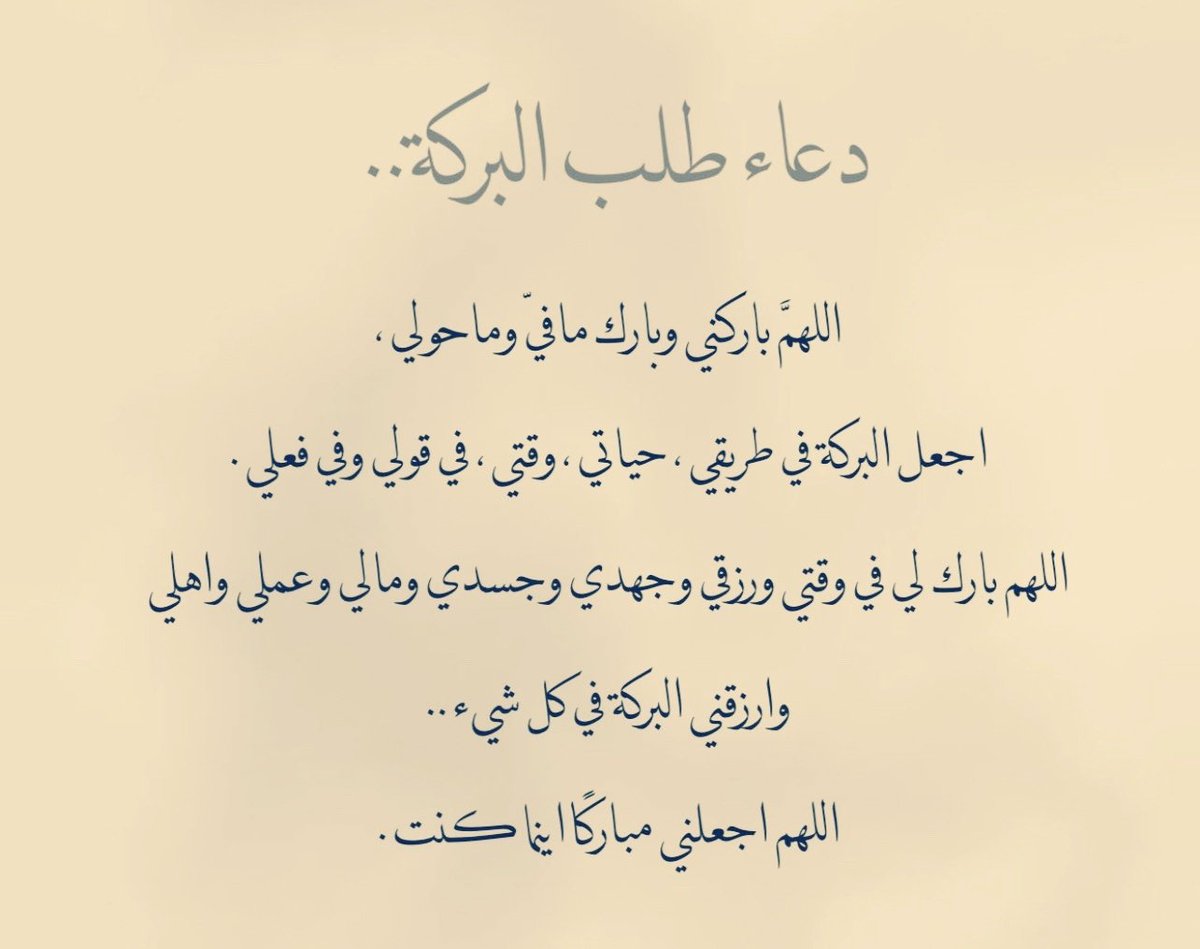 دعاء طلب البركة..
اللهمَّ باركني وبارك مافيّ وماحولي ،
اجعل البركة في طريقي ، حياتي ، وقتي ، في قولي وفي فعلي .
اللهم بارك لي في وقتي ورزقي وجهدي وجسدي ومالي وعملي واهلي
وارزقني البركة في كل شيء ..
اللهم اجعلني مباركًا اينما كنت .